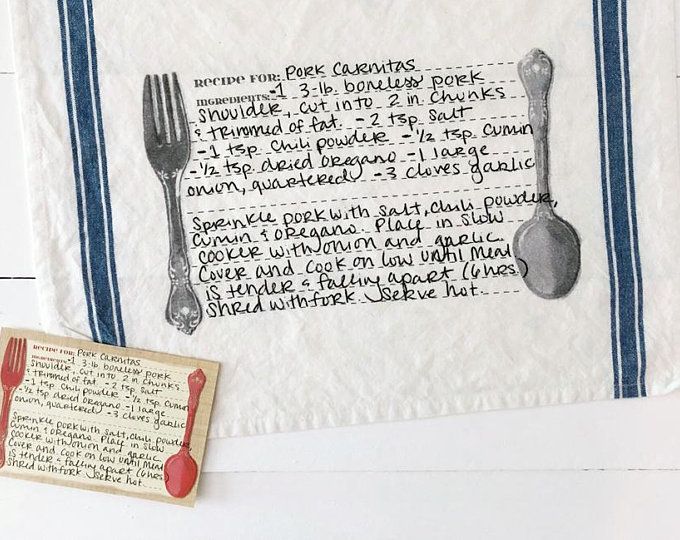 Recipe for: Pork Carnitas
Ingredients: -1 3-lb. boneless pork
shoulder, cut into 2 in chunks
& trimmed of fat. - 2 tsp salt
-1 tsp chili powder -1/2 tsp cumin
-1/2 tsp dried oregano -1 large
onion, quartered -3 cloves garlic
Sprinkle pork with salt, chili powder,
cumin & oregano. Place in slow
cooker with onion and garlic.
Cover and cook on low until meat
is tender & falling apart (6 hrs.)
Shred with fork. Serve hot.
Recipe for: Pork Carnitas
Ingredients: -1 3-lb. boneless pork
shoulder, cut into 2 in chunks
& trimmed of fat. - 2 tsp salt
-1 tsp chili powder -1/2 tsp cumin
-1/2 tsp dried oregano -1 large
onion, quartered -3 cloves garlic
Sprinkle pork with salt, chili powder,
cumin & oregano. Place in slow
cooker with onion and garlic.
Cover and cook on low until meat
is tender & falling apart (6 hrs.)
Shred with fork. Serve hot.